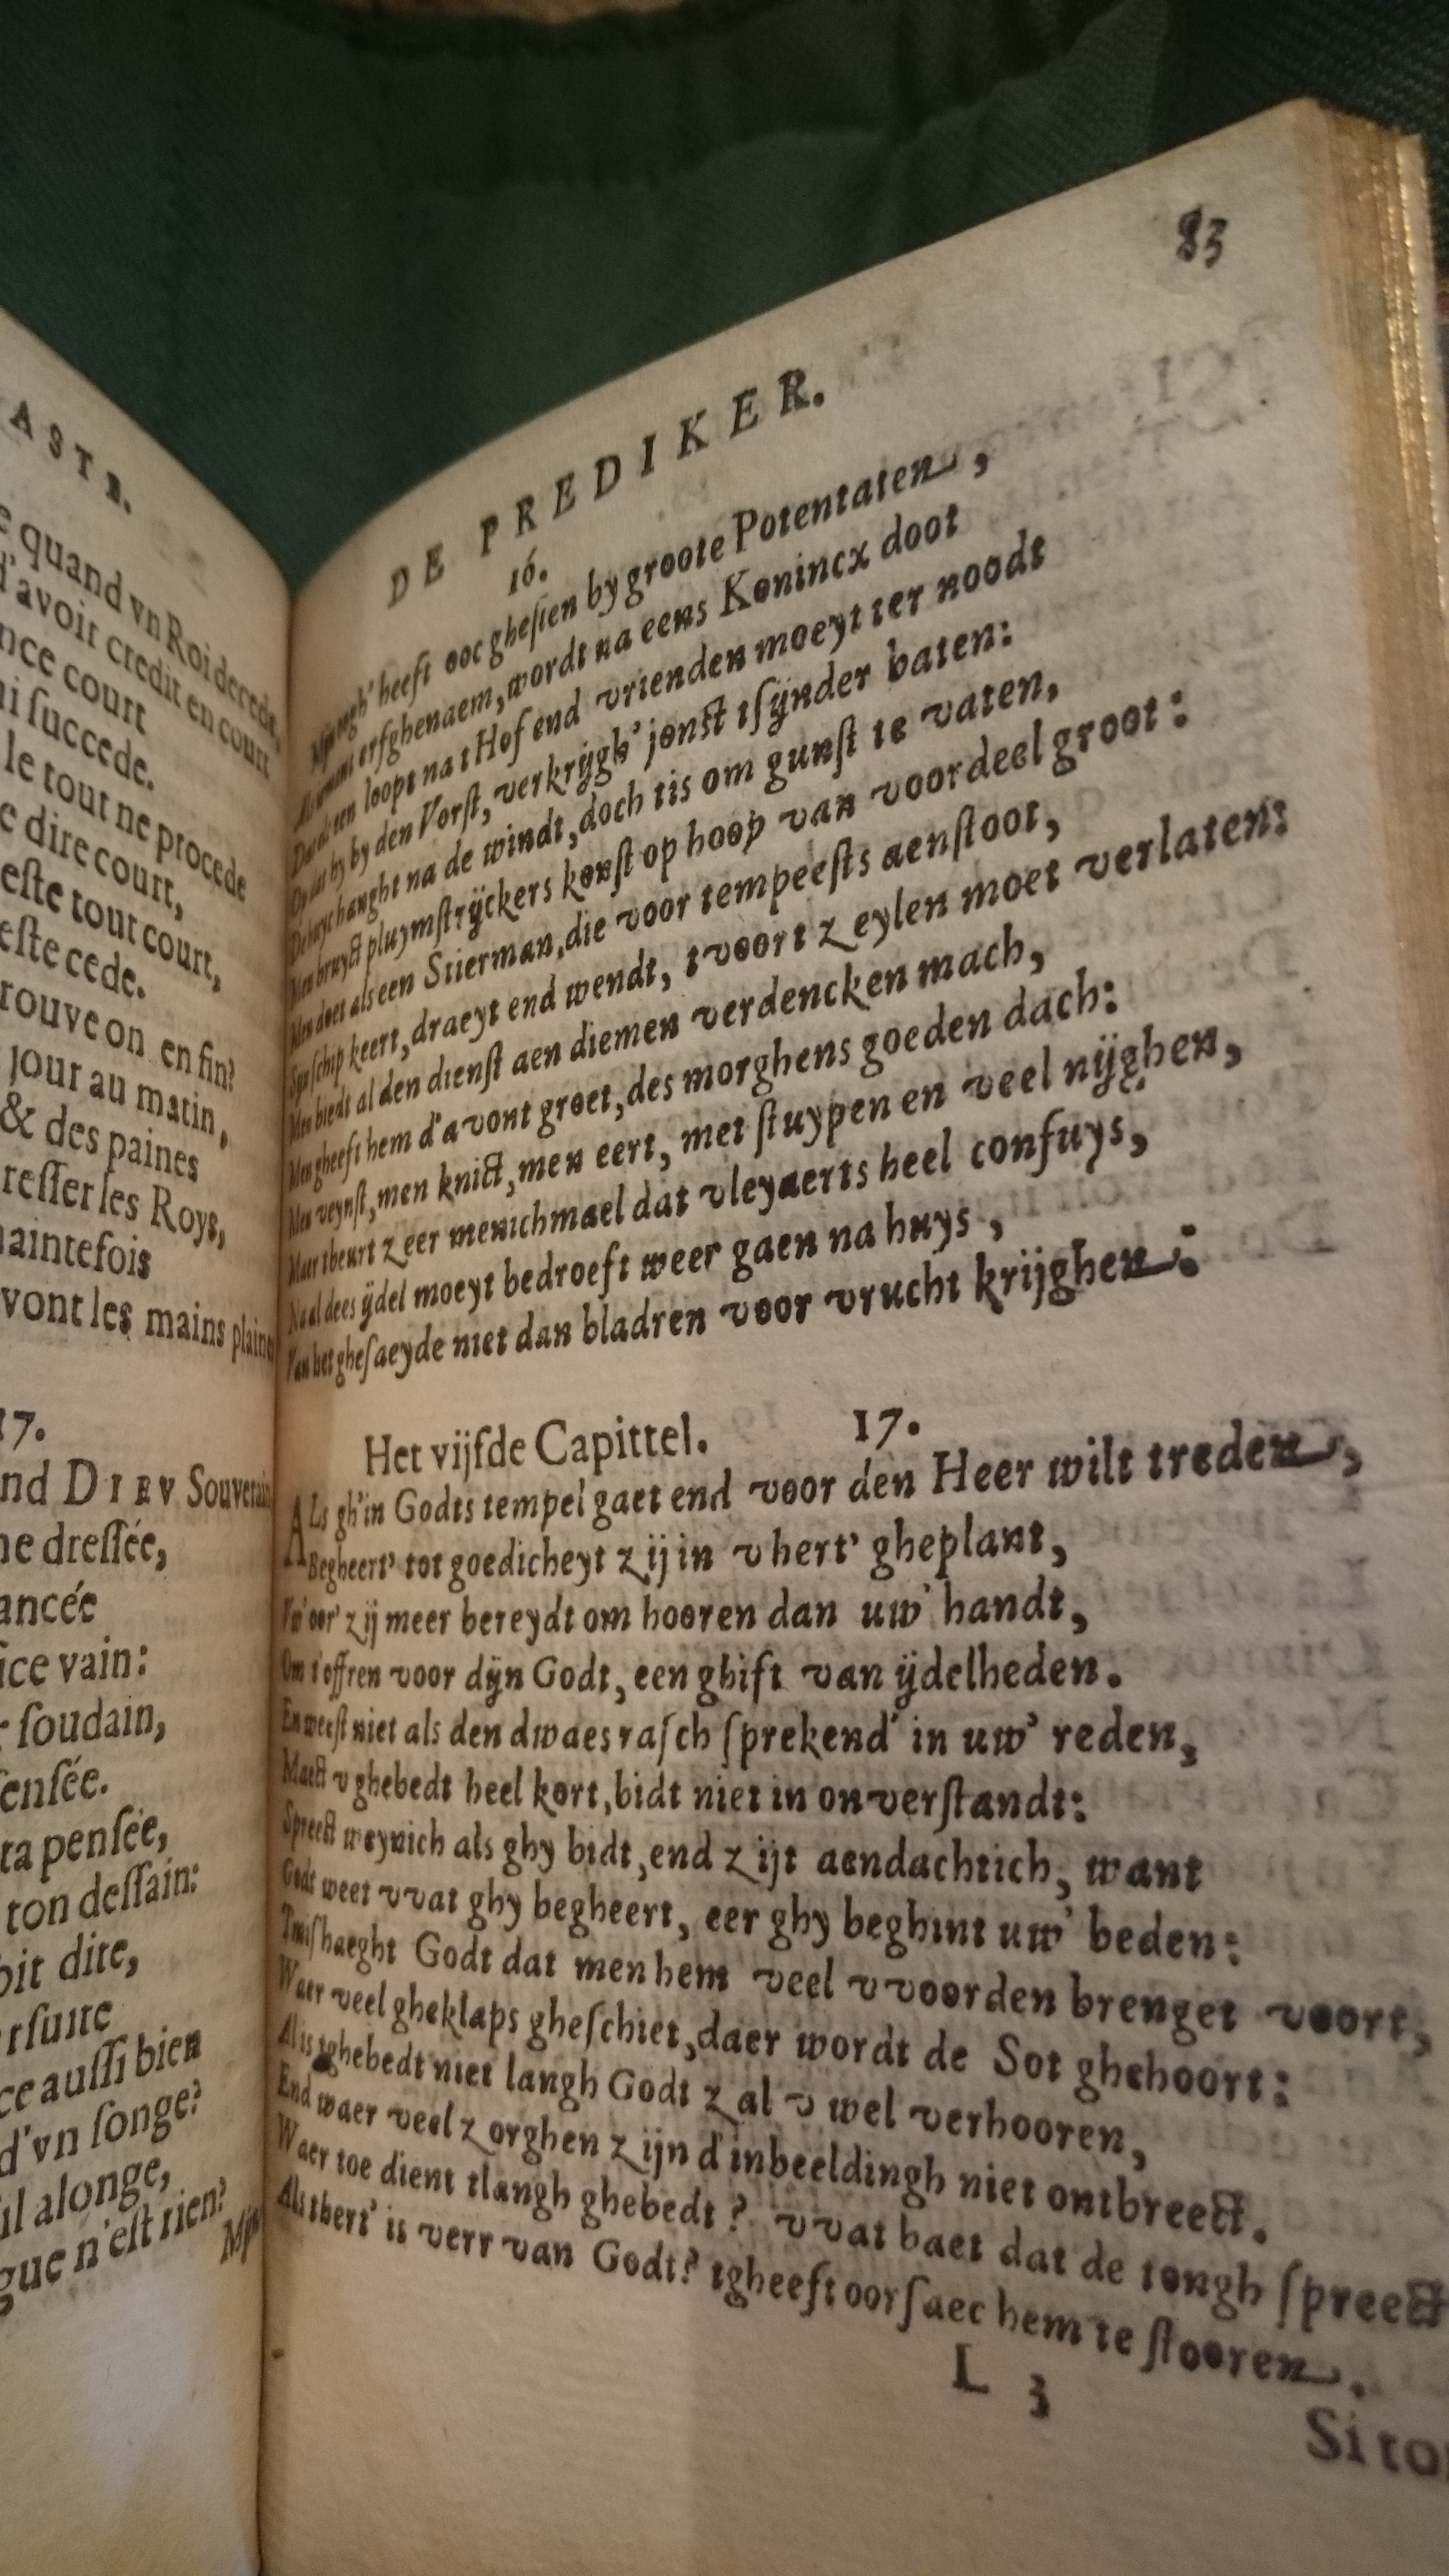 ASTE.
quand vn Roi decede,
d'avoir credit en court
nce court
i ſuccede.
le tout ne procede
e dire court,
eſte tout court,
eſte cede.
rouve on en fin?
jour au matin,
& des paines
reſſer les Roys,
aintefois
vont les mains plaine
17.
nd DIEV Souverain
ne dreſſée,
ancée
ice vain:
r ſoudain,
enſée.
ta penſée,
ton deſſain:
oit dite,
rſuite
ce auſſi bien
d'vn ſonge?
il alonge,
gue n'eſt rien?
83
DE PREDIKER.
16.
heeft ooc gheſien by groote Potentaten,
erfghenaem, wordt na eens Konincx doot
loopt na t Hof end vrienden moeyt ter noodt
by den Vorſt, verkrijgh' jonſt tſijnder baten:
na de windt, doch tis om gunſt te vaten,
Men bruyct pluymſtrijckers konſt op hoop van voordeel groot:
Men doet als een Stierman, die voor tempeeſts aenſtoot,
Sijn ſchip keert, draeyt end wendt, tvoort zeylen moet verlaten:
Men biedt al den dienſt aen diemen verdencken mach,
Men gheeft hem d'avont groet, des morghens goeden dach:
Men veynſt, men knict, men eert, met ſtuypen en veel nijghen,
Maer tbeurt zeer menichmael dat vleyaerts heel confuys,
Na al dees ijdel moeyt bedroeft weer gaen na huys,
Van het gheſaeyde niet dan bladren voor vrucht krijghen:
Het vijfde Capittel. 17.
ALs gh'in Godts tempel gaet end voor den Heer wilt treden,
Begheert' tot goedicheyt zij in v hert' gheplant,
V'oor' zij meer bereydt om hooren dan uw' handt,
Om t'offren voor dijn Godt, een ghift van ijdelheden.
En weeſt niet als den dwaes raſch ſprekend' in uw' reden,
Maect v ghebedt heel kort, bidt niet in onverſtandt:
Spreect weynich als ghy bidt, end zijt aendachtich, want
Godt weet vvat ghy begheert, eer ghy beghint uw' beden:
Tmiſhaeght Godt dat men hem veel vvoorden brenget voort,
Waer veel gheklaps gheſchiet, daer wordt de Sot ghehoort:
Al is tghebedt niet langh Godt zal v wel verhooren,
End waer veel zorghen zijn d'inbeeldingh niet ontbreect.
Waer toe dient tlangh ghebedt? vvat baet dat de tongh ſpreect
Als thert' is verr van Godt? tgheeft oorſaec hem te ſtooren.
L 3